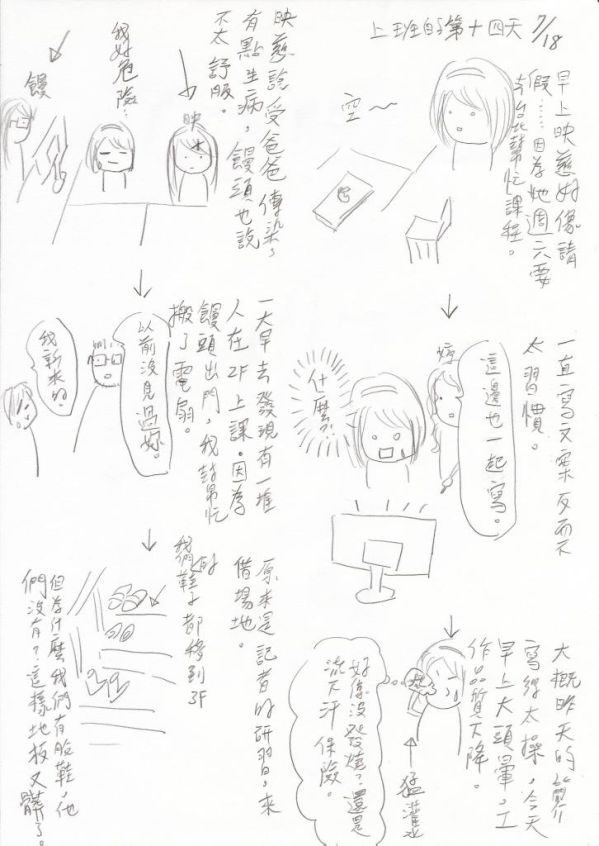 上班的第十四天 7/18
早上映慈好像請
假……因為她週六要
去台北幫忙課程。
空~
一直寫文案反而不
太習慣。
這邊也一起寫。
什麼?
大概昨天的簡介
寫得太操,今天
早上大頭暈,工
作品質下降。
好像沒發燒?還是
流下汗保險。
猛灌水
映慈說受爸爸傳染了
有點生病,饅頭也說
不太舒服。
映
我好危險…
饅
一大早去發現有一堆
人在2F上課。因為
饅頭出門,我幫忙
搬了電扇。
以前沒見過妳。
我新來的。
原來是記者的研習,來
借場地。
我們的鞋子都移到3F
但為什麼我們有脫鞋,他
們沒有?這樣地板又髒了。